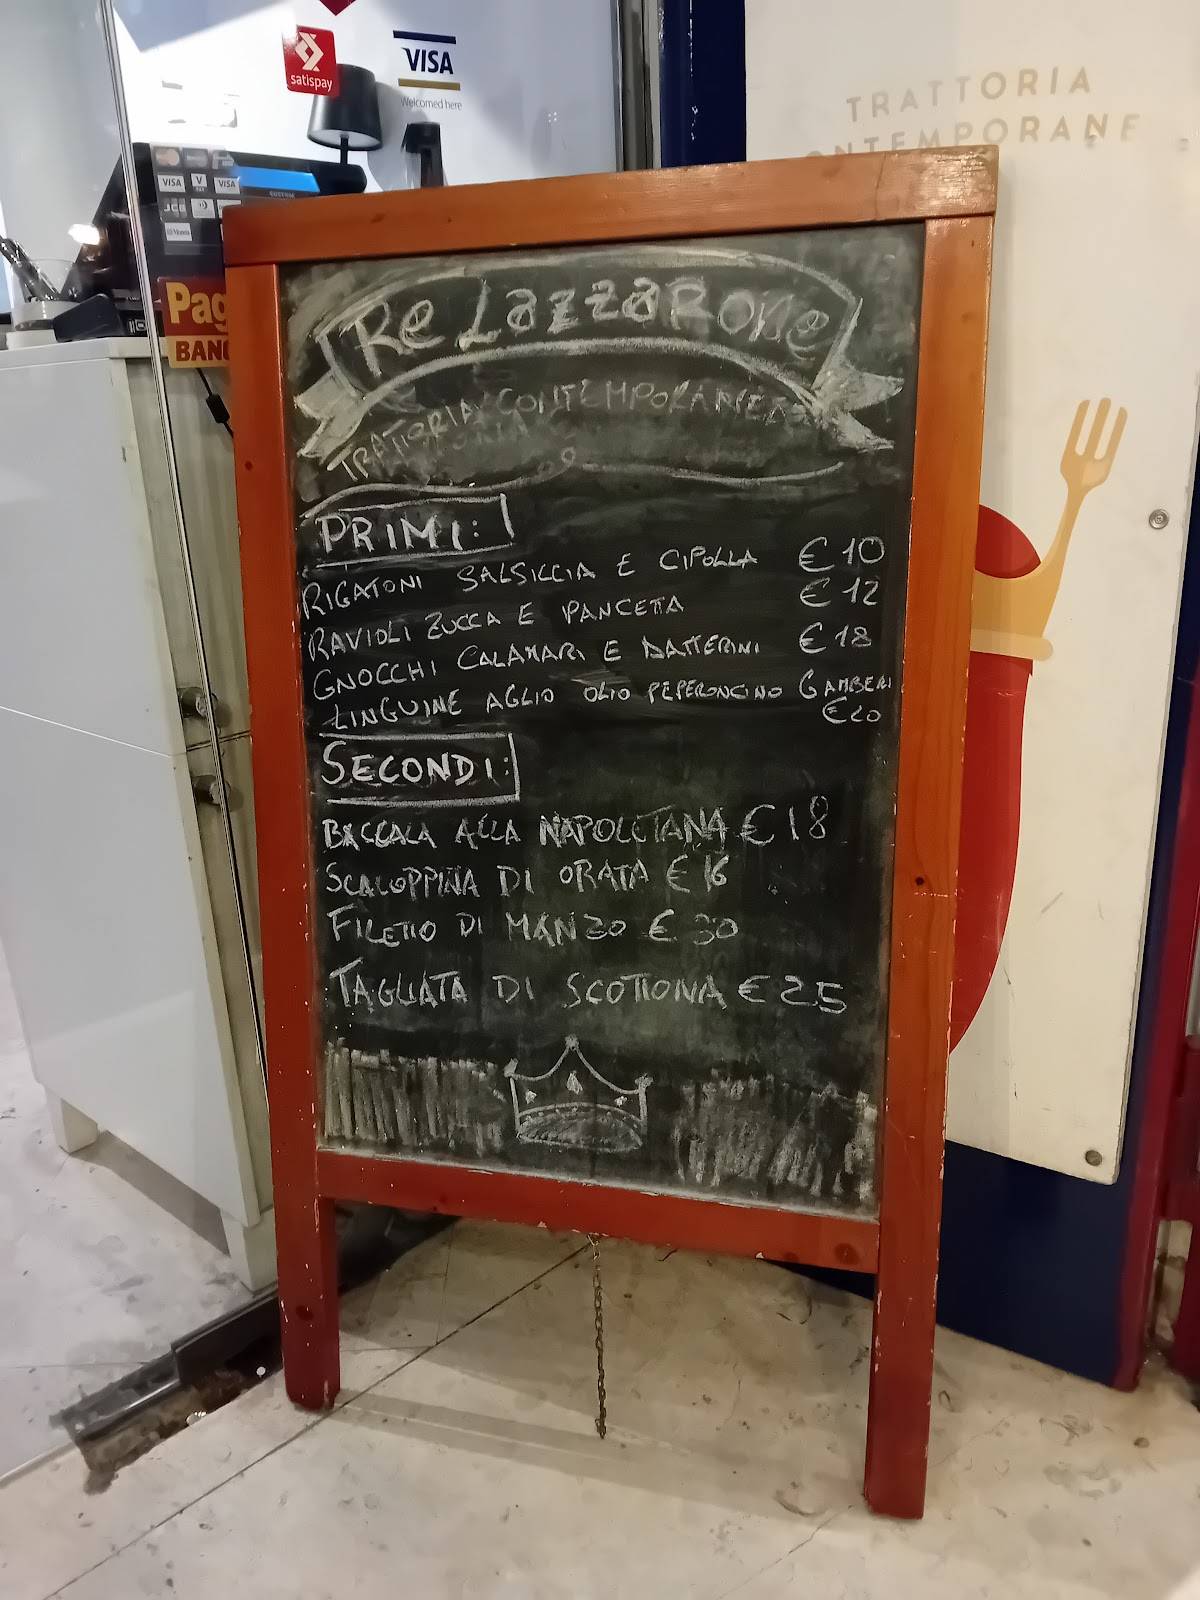 satispay
VISA
Welcomed here
TRATTORIA
VISA
V
VISA
JCB
CUSTOM
Pag
BANC
Re LazzaRone
TRATTORIA CONTEMPORANEA
PRIMI:
RIGATONI SALSICCIA E CIPOLLA €10
RAVIOLI ZUCCA E PANCETTA €12
GNOCCHI CALAMARI E DATTERINI €18
LINGUINE AGLIO OLIO PEPERONCINO GAMBERI
€20
SECONDI:
BACCALA ALLA NAPOLETANA €18
SCALOPPINA DI ORATA €16
FILETTO DI MANZO €30
TAGLIATA DI SCOTTONA €25